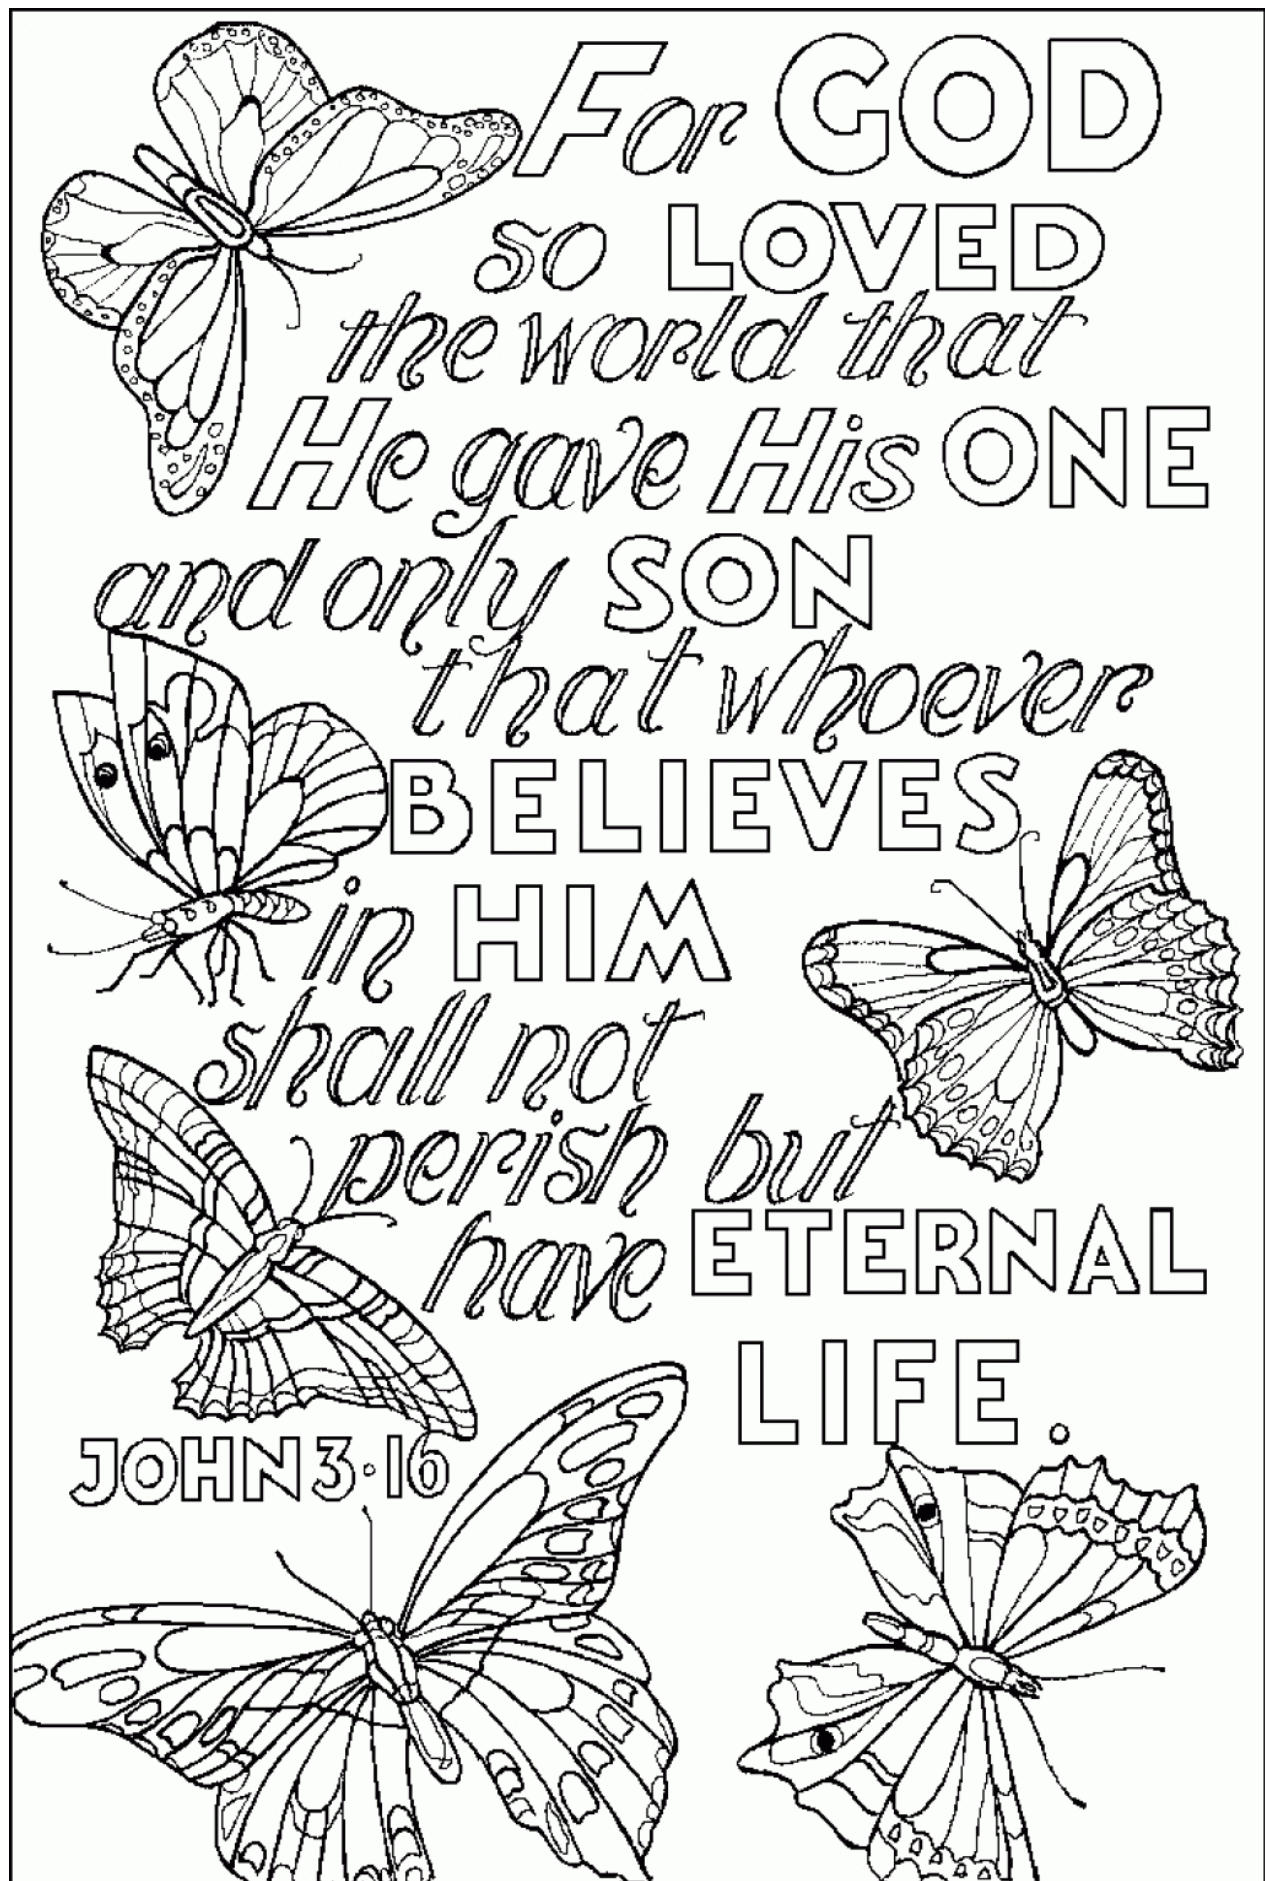 For GOD
so LOVED
the world that
He gave His ONE
and only SON
that whoever
BELIEVES
in HIM
shall not
perish but
have ETERNAL
LIFE.
JOHN 3·16